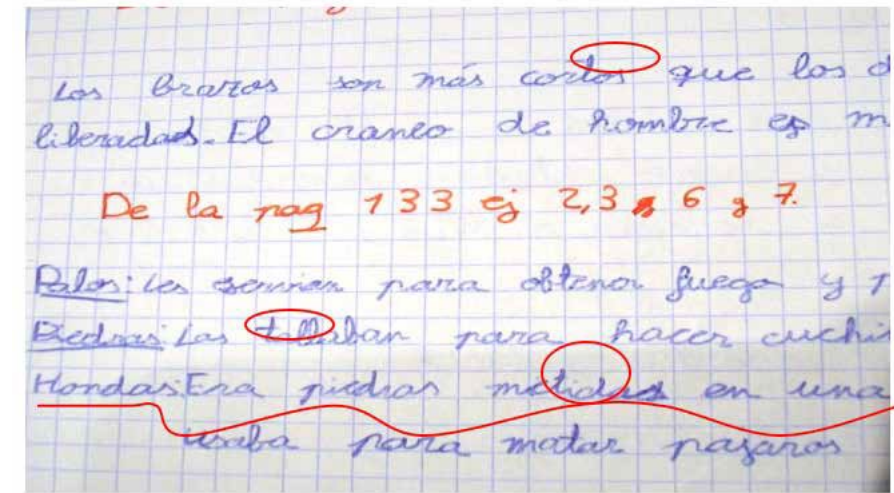 Los brazos son más cortos que los d
liberadas. El craneo de hombre es m
De la pag 133 ej 2,3 6 y 7.
Palos: les servian para obtener fuego y p
Piedras: Las tallaban para hacer cuchi
Hondas: Era piedras metidas en una
usaba para matar pajaros